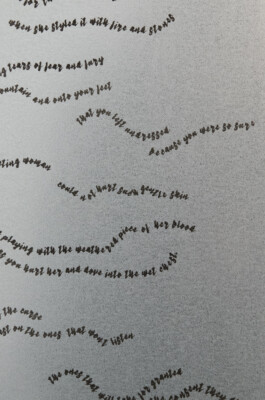 when she styled it with fire and stones
tears of fear and fury
and onto your feet
that you left undressed
because you were so sure
woman
could not hurt such gentle skin
playing with the weathered piece of her blood
you hurt her and dove into the wet chest
the curse
on the ones that won't listen
the ones that
will take for granted
the consent they